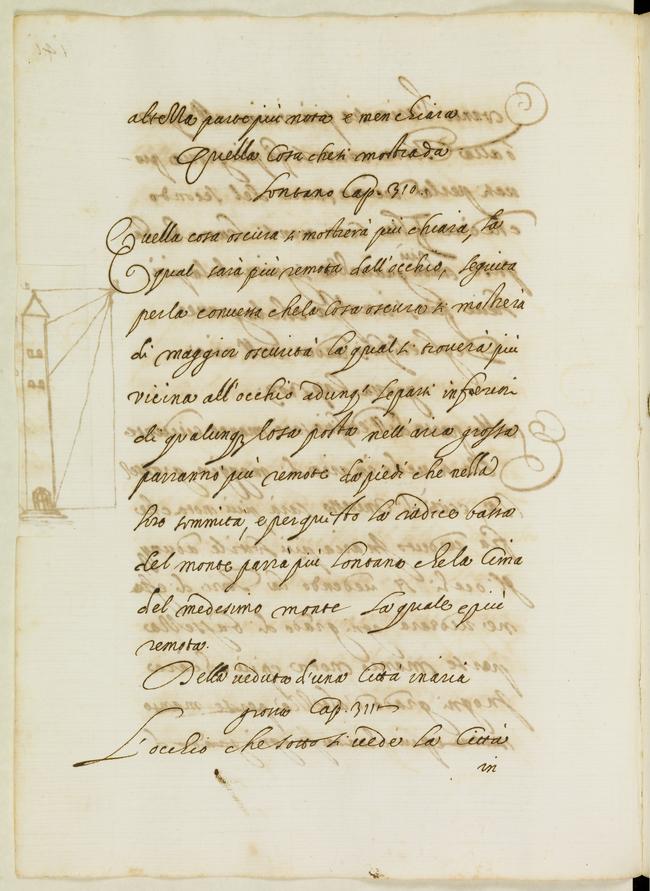 altezza parte più nota e men chiara
Quella Cosa che si mostra da
lontano Cap. 310.
Quella cosa oscura si mostrerà più chiara, la
qual sarà più remota dall'occhio, seguita
per la conversa che la Cosa oscura si mostrerà
di maggior oscurità la qual si troverà più
vicina all'occhio adunq le parti inferiori
di qualunq cosa posta nell'aria grossa
parranno più remote da piedi che nella
loro sommità, e per questo la radice bassa
del monte parrà più lontano che la Cima
del medesimo monte la quale e più
remota.
Della veduta d'una Città in aria
grossa Cap. 311
L'occhio che sotto si vede la Città
in